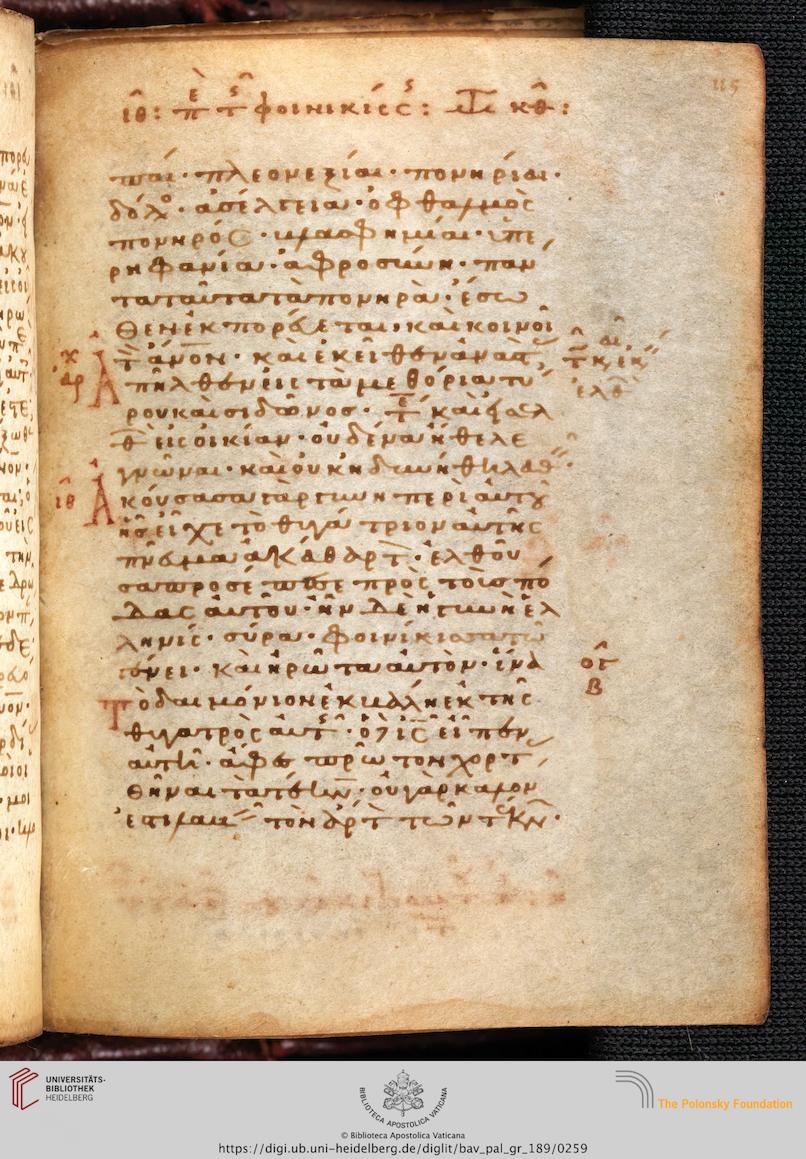 115
ιθ: πε τς φοινικίςς: κθ:
παί· πλεονεξίαι· πονηρίαι·
δόλο· ἀσέλγεια· ὀφθαλμὸς
πονηρός· βλασφημίαι· ὑπε
ρηφανία· ἀφροσύνη· πάν
τα ταῦτα τὰ πονηρὰ· ἔσω
θεν ἐκπορεύεται, καὶ κοινοῖ
τ ἄνον· καὶ ἐκεῖθεν ἀναστ
Ἀπῆλθεν εἰς τὰ μεθόρια τυ
ρου καὶ σιδῶνος· καὶ εἰσελ
θ εἰς οἰκίαν· οὐδένα ἤθελε
γνῶναι· καὶ οὐκ ἠδυνήθη λαθ·
Ἀκούσασα γὰρ γυνὴ περὶ αὐτοῦ
ἧς εἶχε τὸ θυγάτριον αὐτῆς
πνεῦμα ἀκάθαρτ· ἐλθοῦ
σα προσέπεσε πρὸς τοὺς πό
δας αὐτοῦ· ἦν δὲ ἡ γυνὴ ἑλ
ληνίς· σύρα· φοινίκισσα τῶ
γένει· καὶ ἠρώτα αὐτὸν· ἵνα
Τὸ δαιμόνιον ἐκβάλη ἐκ τῆς
θυγατρὸς αὐτ· ὁ ις εἶπεν
αὐτῆ· ἄφες πρῶτον χορτ
θῆναι τὰ τέκν· οὐ γὰρ καλὸν
ἐστι λαβ τὸν ἄρτ τῶν τέκν·
ιθ
οε
β
UNIVERSITÄTS-
BIBLIOTHEK
HEIDELBERG
BIBLIOTHECA APOSTOLICA VATICANA
The Polonsky Foundation
© Biblioteca Apostolica Vaticana
https://digi.ub.uni-heidelberg.de/diglit/bav_pal_gr_189/0259